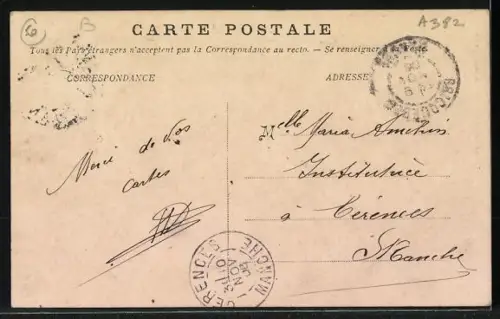 6
B
A382
CARTE POSTALE
Tous les Pays étrangers n'acceptent pas la Correspondance au recto. — Se renseigner à la Poste.
CORRESPONDANCE
ADRESSE
Merci de vos
cartes
Melle Maria
Institutrice
à Cérences
Manche
CERENCES
MANCHE
NOV